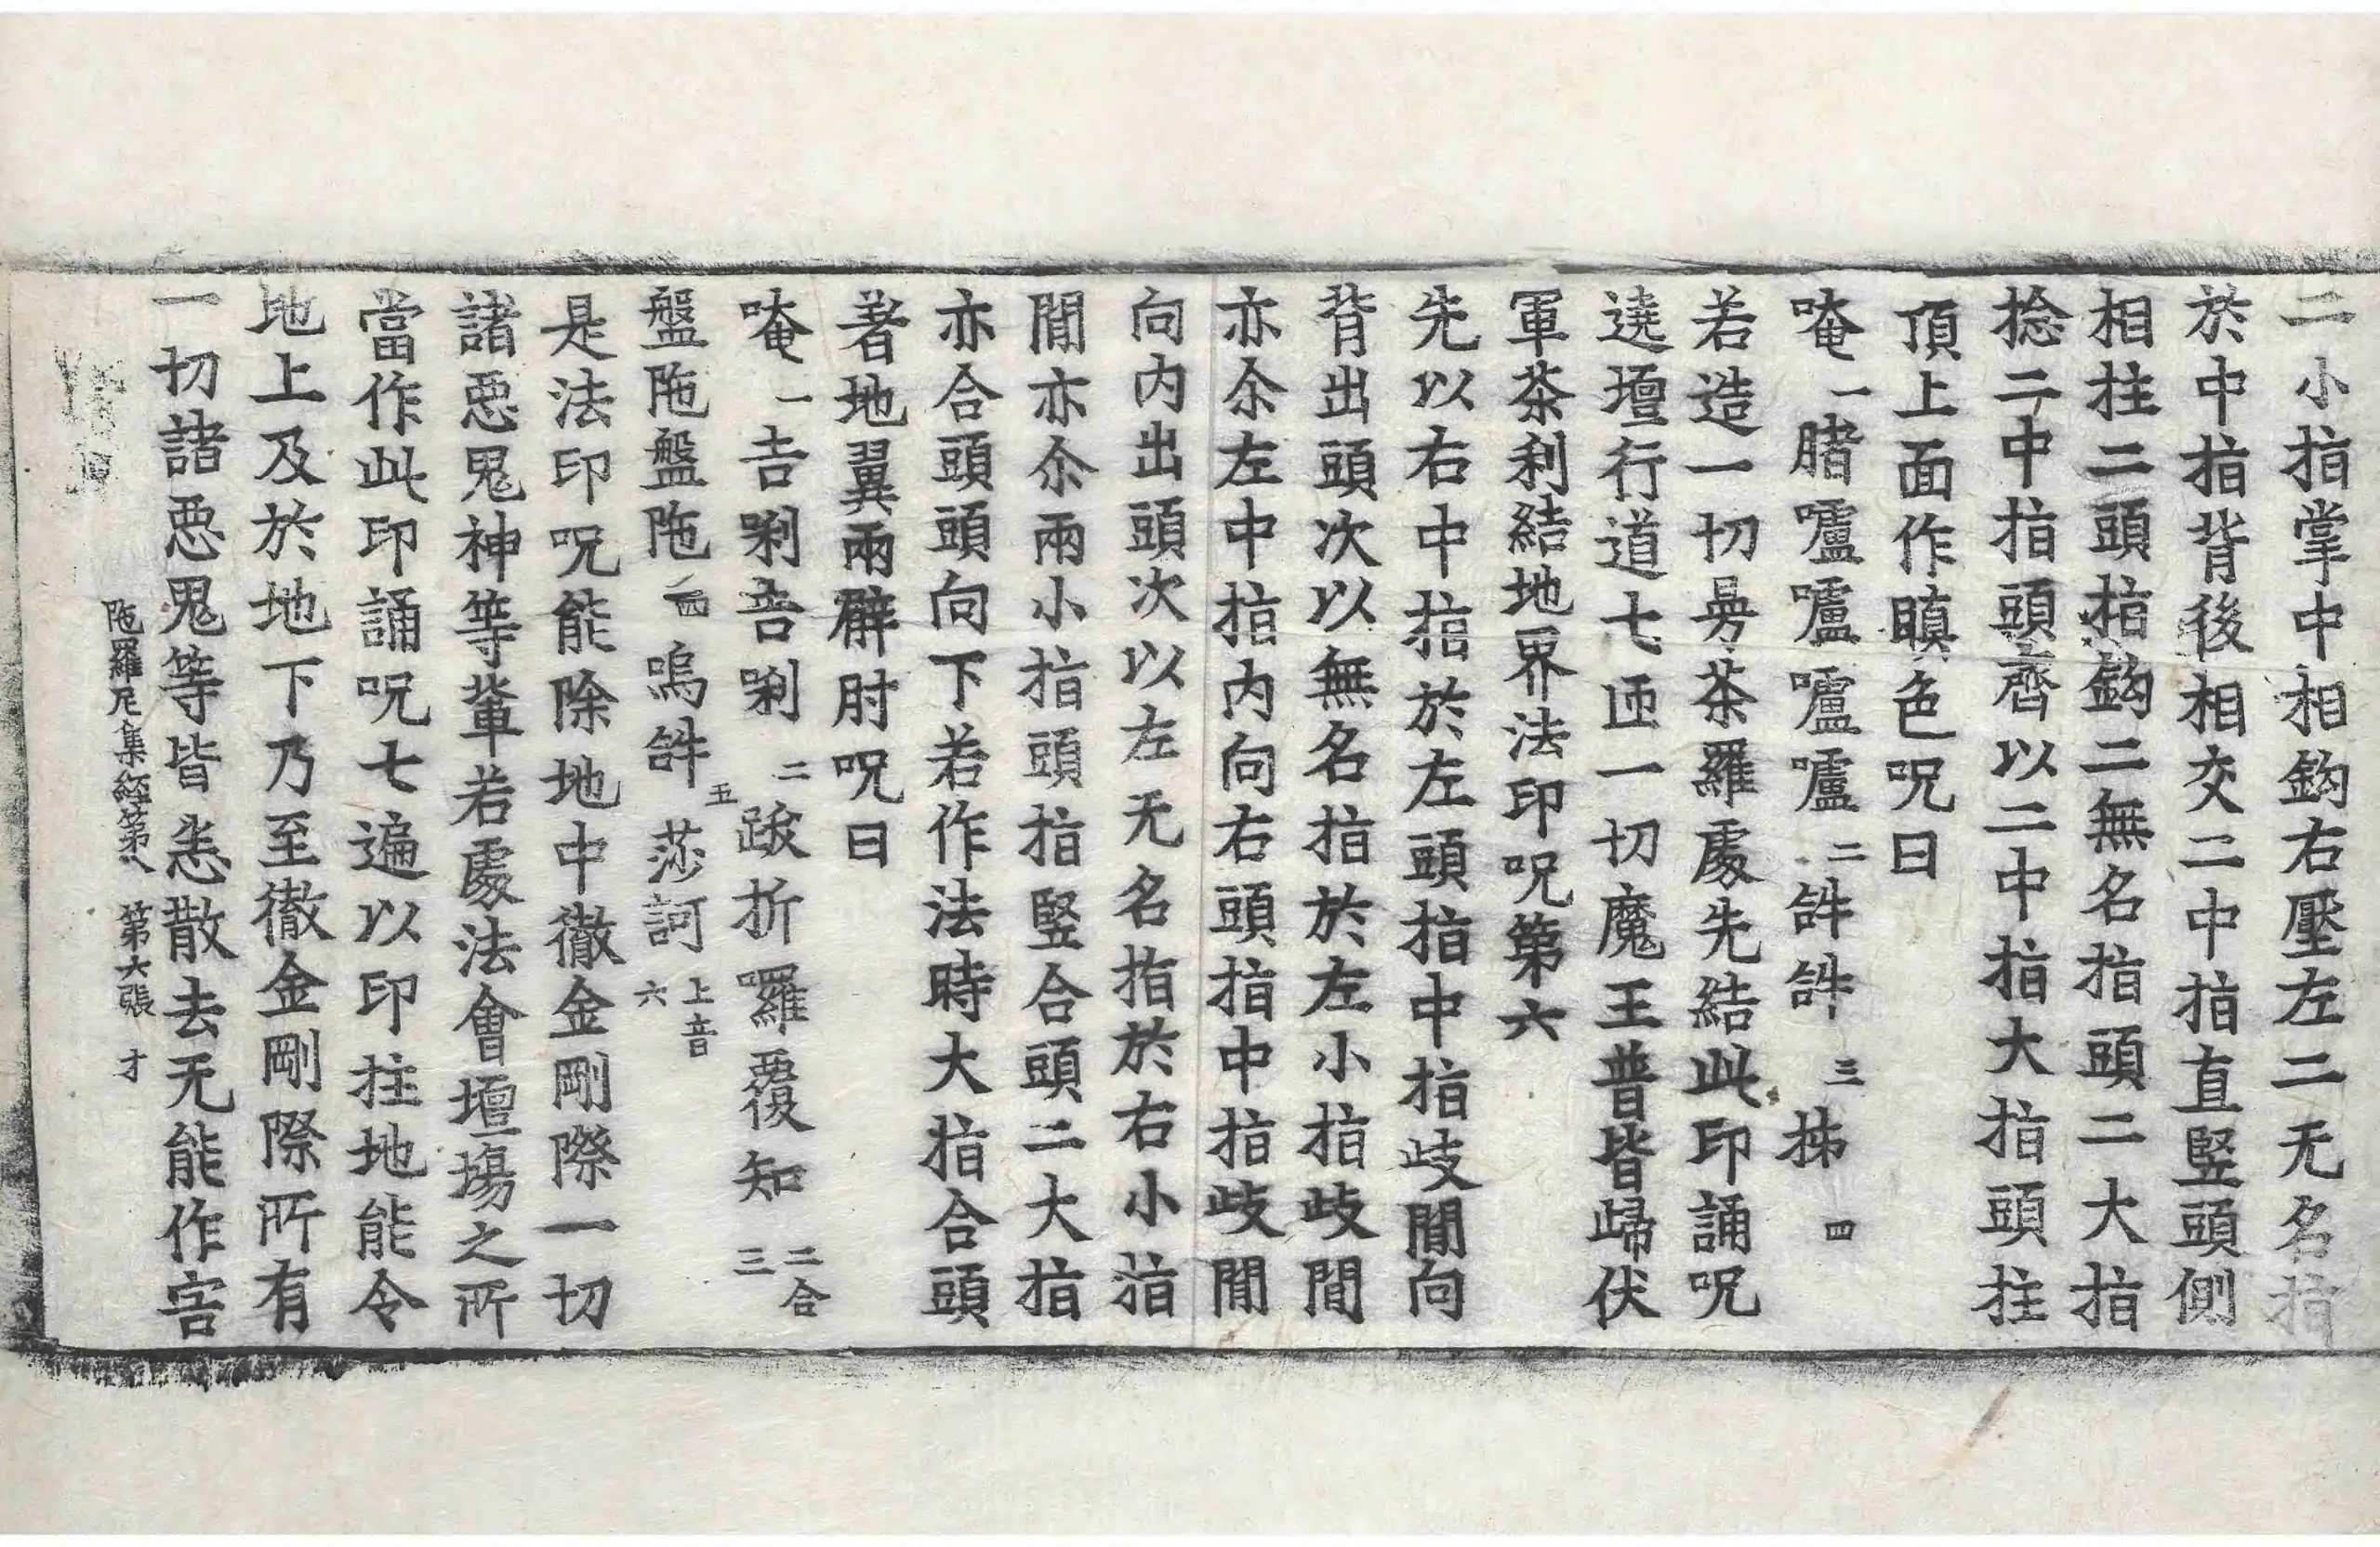 二小指掌中相鈎右壓左二无名指
於中指背後相交二中指直竪頭側
相拄二頭指鈎二無名指頭二大指
捻二中指頭齊以二中指大指頭拄
頂上面作瞋色呪曰
唵一䐗嚧嚧嚧嚧二𤙖𤙖三㧊四
若造一切㬅荼羅處先結此印誦呪
遶壇行道七迊一切魔王普皆歸伏
軍荼利結地界法印呪第六
先以右中指於左頭指中指歧閒向
背出頭次以無名指於左小指歧閒
亦尒左中指内向右頭指中指歧閒
向内出頭次以左无名指於右小指
閒亦尒兩小指頭指竪合頭二大指
亦合頭頭向下若作法時大指合頭
著地翼兩臂肘呪曰
唵一吉唎吉唎二跋折囉覆知二合三
盤陁盤陁四嗚𤙖五莎訶上音六
是法印呪能除地中徹金剛際一切
諸惡鬼神等輩若處法會壇場之所
當作此印誦呪七遍以印拄地能令
地上及於地下乃至徹金剛際所有
一切諸惡鬼等皆悉散去无能作害
陁羅尼集經第八 第六張 才